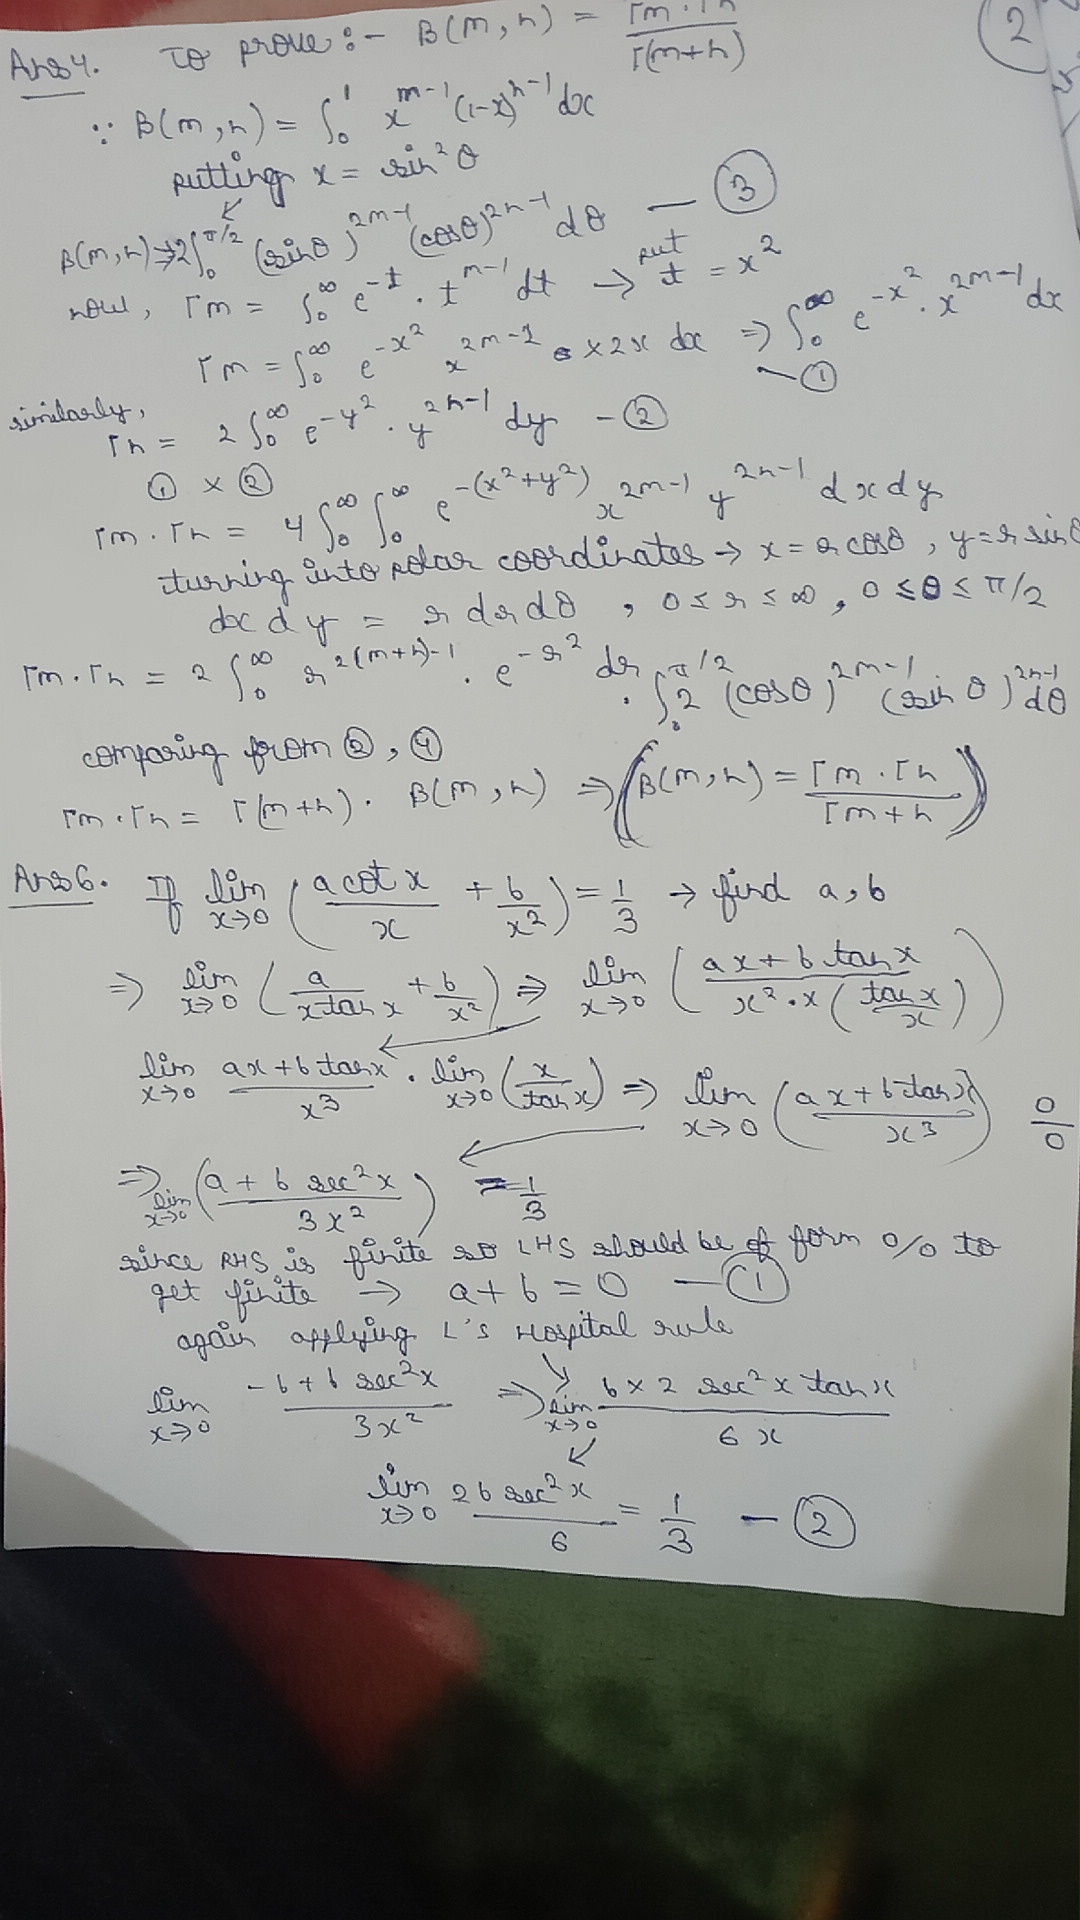 ②
Ans4. To prove :- B(m,n) = Γm·Γn / Γ(m+n)
∵ B(m,n) = ∫₀¹ x^(m-1) (1-x)^(n-1) dx
putting x = sin²θ
B(m,n) ⇒ 2∫₀^(π/2) (sinθ)^(2m-1) (cosθ)^(2n-1) dθ — ③
now, Γm = ∫₀^∞ e^(-t) · t^(m-1) dt → put t = x²
Γm = ∫₀^∞ e^(-x²) x^(2m-2) × 2x dx ⇒ ∫₀^∞ e^(-x²) · x^(2m-1) dx
— ①
similarly,
Γn = 2∫₀^∞ e^(-y²) · y^(2n-1) dy - ②
① × ②
Γm·Γn = 4∫₀^∞ ∫₀^∞ e^(-(x²+y²)) x^(2m-1) y^(2n-1) dxdy
turning into polar coordinates → x = r cosθ, y = r sinθ
dx dy = r dr dθ, 0 ≤ r ≤ ∞, 0 ≤ θ ≤ π/2
Γm·Γn = 2∫₀^∞ r^(2(m+n)-1) · e^(-r²) dr · ∫₀^(π/2) 2 (cosθ)^(2m-1) (sinθ)^(2n-1) dθ
comparing from ②, ④
Γm·Γn = Γ(m+n) · B(m,n) ⇒ (B(m,n) = Γm·Γn / Γm+n)
Ans6. If lim x→0 (a cot x / x + b/x²) = 1/3 → find a, b
⇒ lim x→0 (a / x tan x + b/x²) ⇒ lim x→0 (ax + b tan x / x²·x (tan x / x))
lim x→0 ax + b tan x / x³ · lim x→0 (x / tan x) ⇒ lim x→0 (ax + b tan x / x³) 0/0
⇒ lim x→0 (a + b sec²x / 3x²) = 1/3
since RHS is finite so LHS should be of form 0/0 to
get finite → a + b = 0 — ①
again applying L's Hospital rule
lim x→0 -b + b sec²x / 3x² ⇒ lim x→0 b×2 sec²x tan x / 6x
lim x→0 2b sec²x / 6 = 1/3 — ②